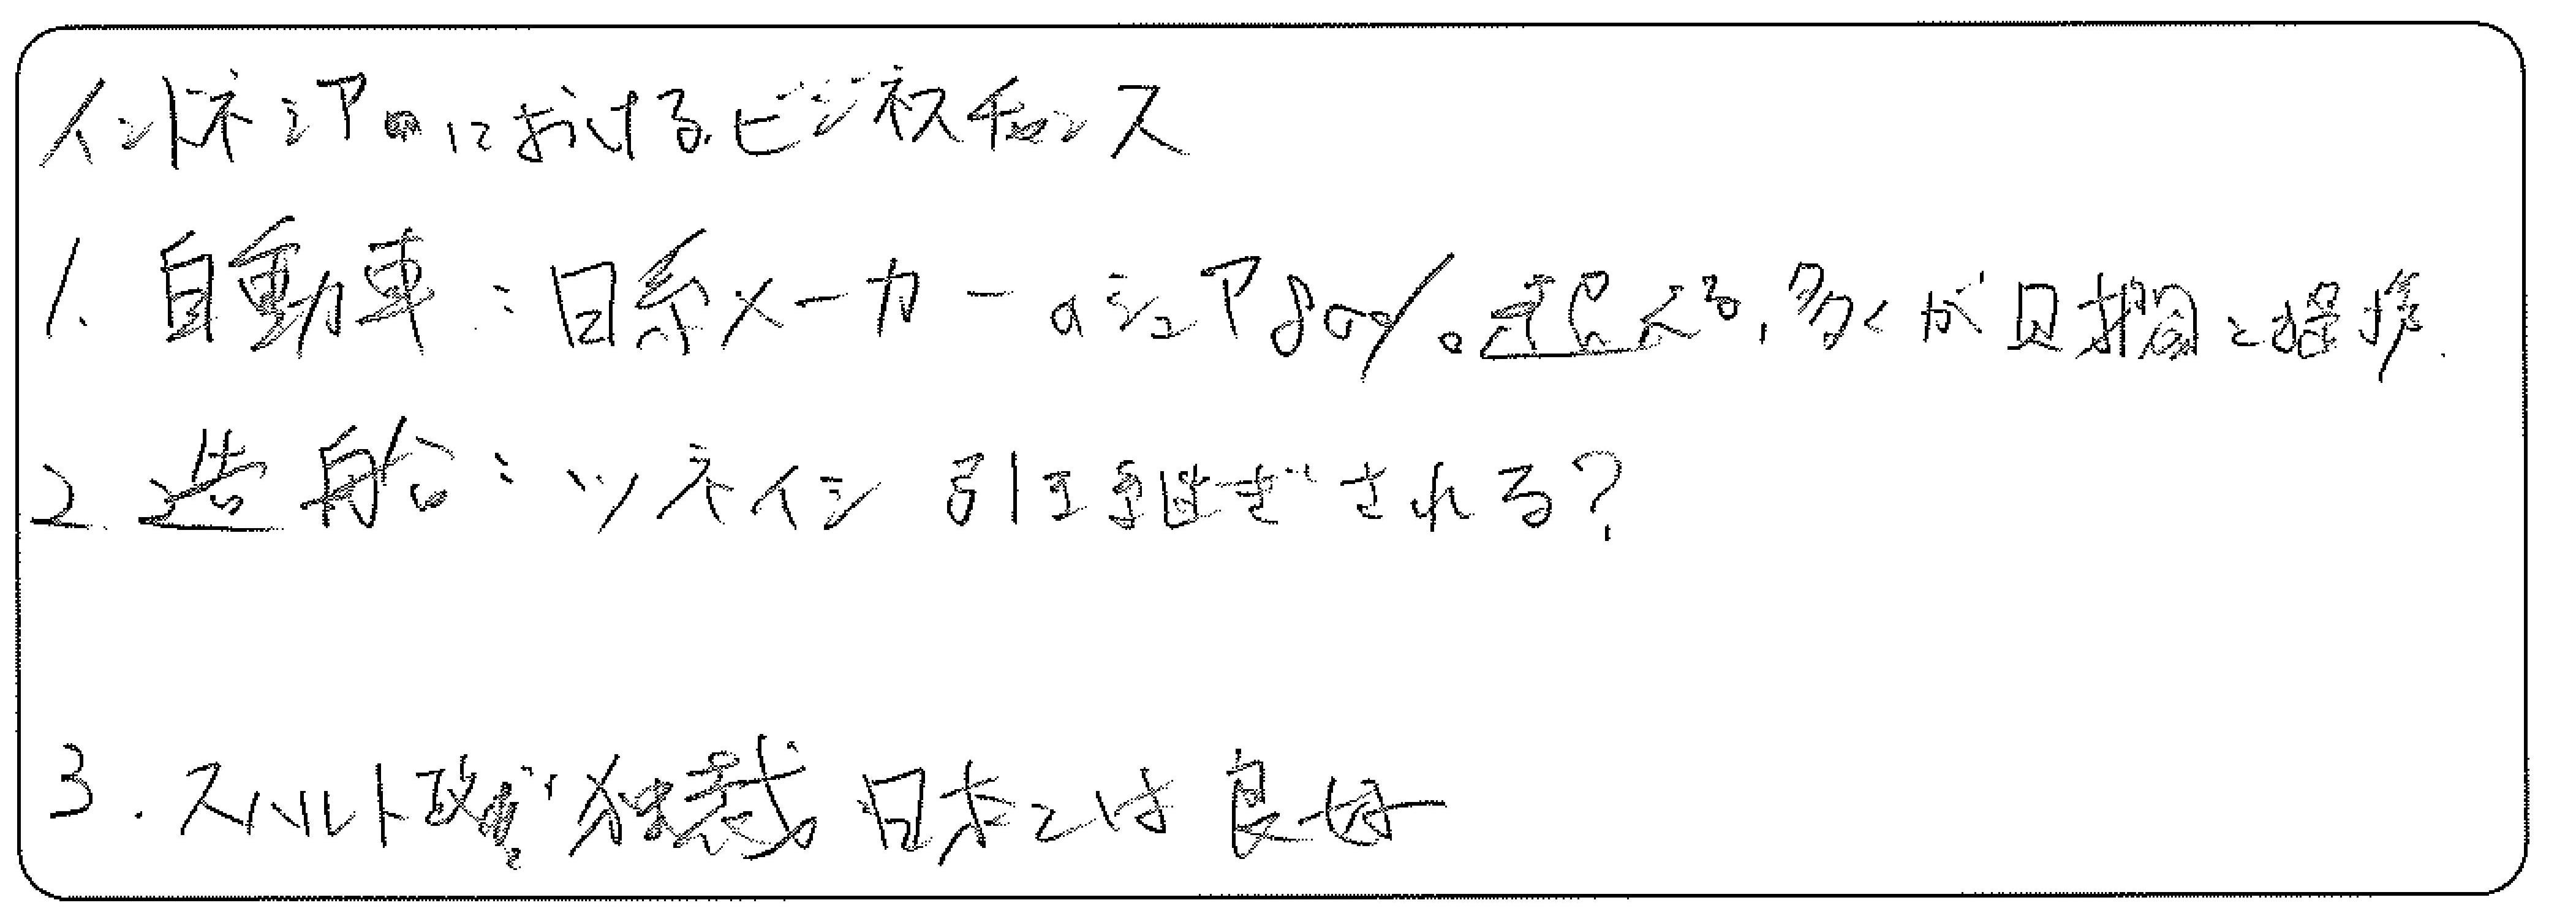 インドネシアにおけるビジネスチャンス
1. 自動車:日系メーカーのシェア80%超える,多くが財閥と提携.
2. 造船:ツネイシ 引き継ぎされる?
3. スハルト政 独裁 日本とは良好